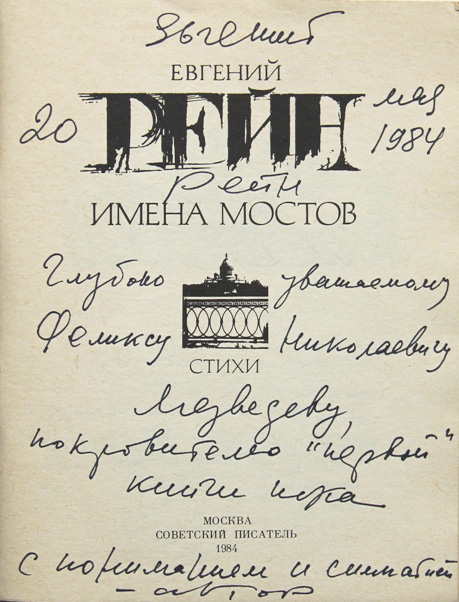 Евгений
ЕВГЕНИЙ
20 РЕЙН мая
1984
Рейн
ИМЕНА МОСТОВ
Глубоко уважаемому
Феликсу Николаевичу
СТИХИ
Медведеву,
покровителю "первой"
книги
МОСКВА
СОВЕТСКИЙ ПИСАТЕЛЬ
1984
с пониманием и симпатией
– автор